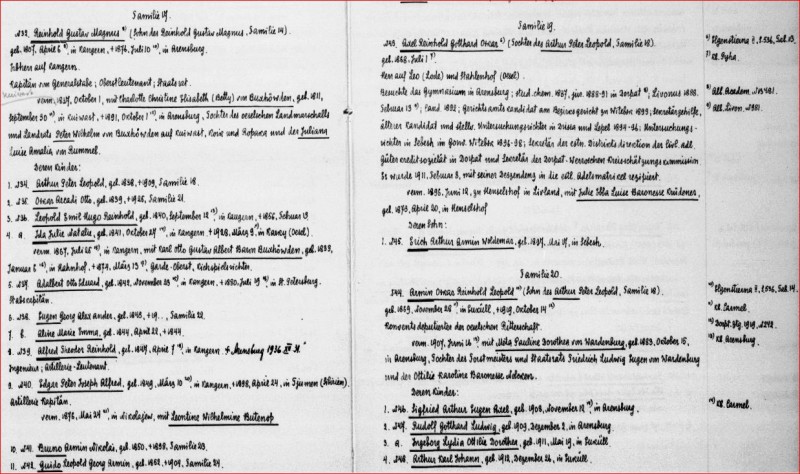 Familie 17.
232. Reinhold Gustav Magnus (Sohn des Reinhold Gustav Magnus, Familie 14)
geb. 1807, April 6, in Kangern, +1876, Juli 10, in Arensburg.
Erbherr auf Kangern.
Kapitän vom Generalstabe; Oberstleutenant; Staatsrat.
verm. 1837, October 1, mit Charlotte Christine Elisabeth (Betty) von Buxhöwden, geb. 1811,
September 30, in Kuiwast, +1891, October 1, in Arensburg, Tochter des oeselschen Landmarschalls
und Landrats Peter Wilhelm von Buxhöwden auf Kuiwast, und der Juliana
Luise Amalia von Hummel.
Deren Kinder:
1. 234. Arthur Peter Leopold, geb. 1838, +1909, Familie 18.
2. 235. Oskar Arcadi Otto, geb. 1839, +1925, Familie 21.
3. 236. Leopold Emil Hugo Reinhold, geb. 1840, September 12, in Kangern, +1866, Februar 19
4. a. Ida Julie Natalie, geb. 1841, October 27, in Kangern +1928, März 9, in (Oesel).
verm. 1867, Juli 25, in Kangern, mit Karl Otto Gustav Albert Baron Buxhöwden, geb. 1839,
Januar 6, in Hahnhof, +1874, März 13, Garde-Oberst, Kirchspielsrichter.
5. 237. Adalbert Otto Eduard, geb. 1842, November 23, in Kangern, +1880, Juli 19, in St. Petersburg.
Stabscapitän.
6. 238. Eugen Georg Alexander, geb. 1843, +19.., Familie 22.
7. b. Aline Marie Emma, geb. 1844, April 22, +1844.
8. 239. Alfred Theodor Reinhold, geb. 1847, April 7, in Kangern + Arensburg 1926
Ingenieur; Artillerie-Leutenant.
9. 240. Edgar Peter Joseph Alfred, geb. 1849, März 10, in Kangern, +1898, April 24, in Tjumen (Sibirien).
Artillerie Kapitän.
verm. 1876, Mai 24, in Nikolajew, mit Leontine Wilhelmine Butenop
10. 241. Bruno Armin Nikolai, geb. 1850, +1898, Familie 23.
11. 242. Guido Leopold Georg Armin, geb. 1852, +1904, Familie 24.
Familie 19.
243. Axel Reinhold Gotthard Oskar (Sohn des Arthur Peter Leopold, Familie 18).
geb. 1868, Juli 1
Herr auf Leo (Lode) und Kahlenhof (Oesel).
Besuchte das Gymnasium in Arensburg; stud. chem. 1887, jur. 1888-91 in Dorpat; Livonus 1888.
Februar 19; Cand 1892; Gerichtsamts Kandidat am Bezirksgericht zu Witebsk 1893; Secretärgehilfe,
älterer Kandidat und stellv. Untersuchungsrichter in Drissa und Lepel 1894-96; Untersuchungs-
richter in Sebesh im Gouv. Witebsk 1896-98; Secretär der estn. Districtsdirection der livl. adl.
Güter Creditsozietät in Dorpat und Secretär der Dorpat-Werroschen Kreisschätzungskommission
Es wurde 1911, Februar 8, mit seiner Deszendenz in die estl. Adelsmatrikel rezipiert.
verm. 1896, Juni 12, zu Henselshof in Livland, mit Julie Ebba Luise Baronesse Krüdener,
geb. 1873, April 20, in Henselshof
Deren Sohn:
1. 245. Erich Arthur Armin Woldemar, geb. 1897, Mai 17, in Sebesh.
Familie 20.
244. Armin Oskar Reinhold Leopold (Sohn des Arthur Peter Leopold, Familie 18).
geb. 1869, November 26, in Euküll, +1919, October 14
Konventsdeputierter der oeselschen Ritterschaft.
verm. 1907, Juni 16, mit Meta Pauline Dorothea von Wardenburg, geb. 1883, October 15,
in Arensburg, Tochter des Forstmeisters und Staatsrats Friedrich Ludwig Eugen von Wardenburg
und der Ottilie Karoline Baronesse Nolcken.
Deren Kinder:
1. 246. Sigfried Arthur Eugen Axel, geb. 1908, November 12, in Arensburg.
2. 247. Rudolf Gotthard Ludwig, geb. 1909, Dezember 2, in Arensburg.
3. a. Ingeborg Lydia Ottilie Dorothea, geb. 1911, Mai 19, in Euküll
4. 248. Arthur Karl Johann, geb. 1912, Dezember 26, in Euküll.
Elgenstierna I, S.536, Tab.13.
Kb. Pyha.
Alb. Academ. № 13481.
Alb. Livon. № 981.
Elgenstierna I, S.536, Tab.14.
Kb. Carmel.
Dorpt. Ztg. 1919, № 212.
Kb. Arensburg.
Kb. Carmel.